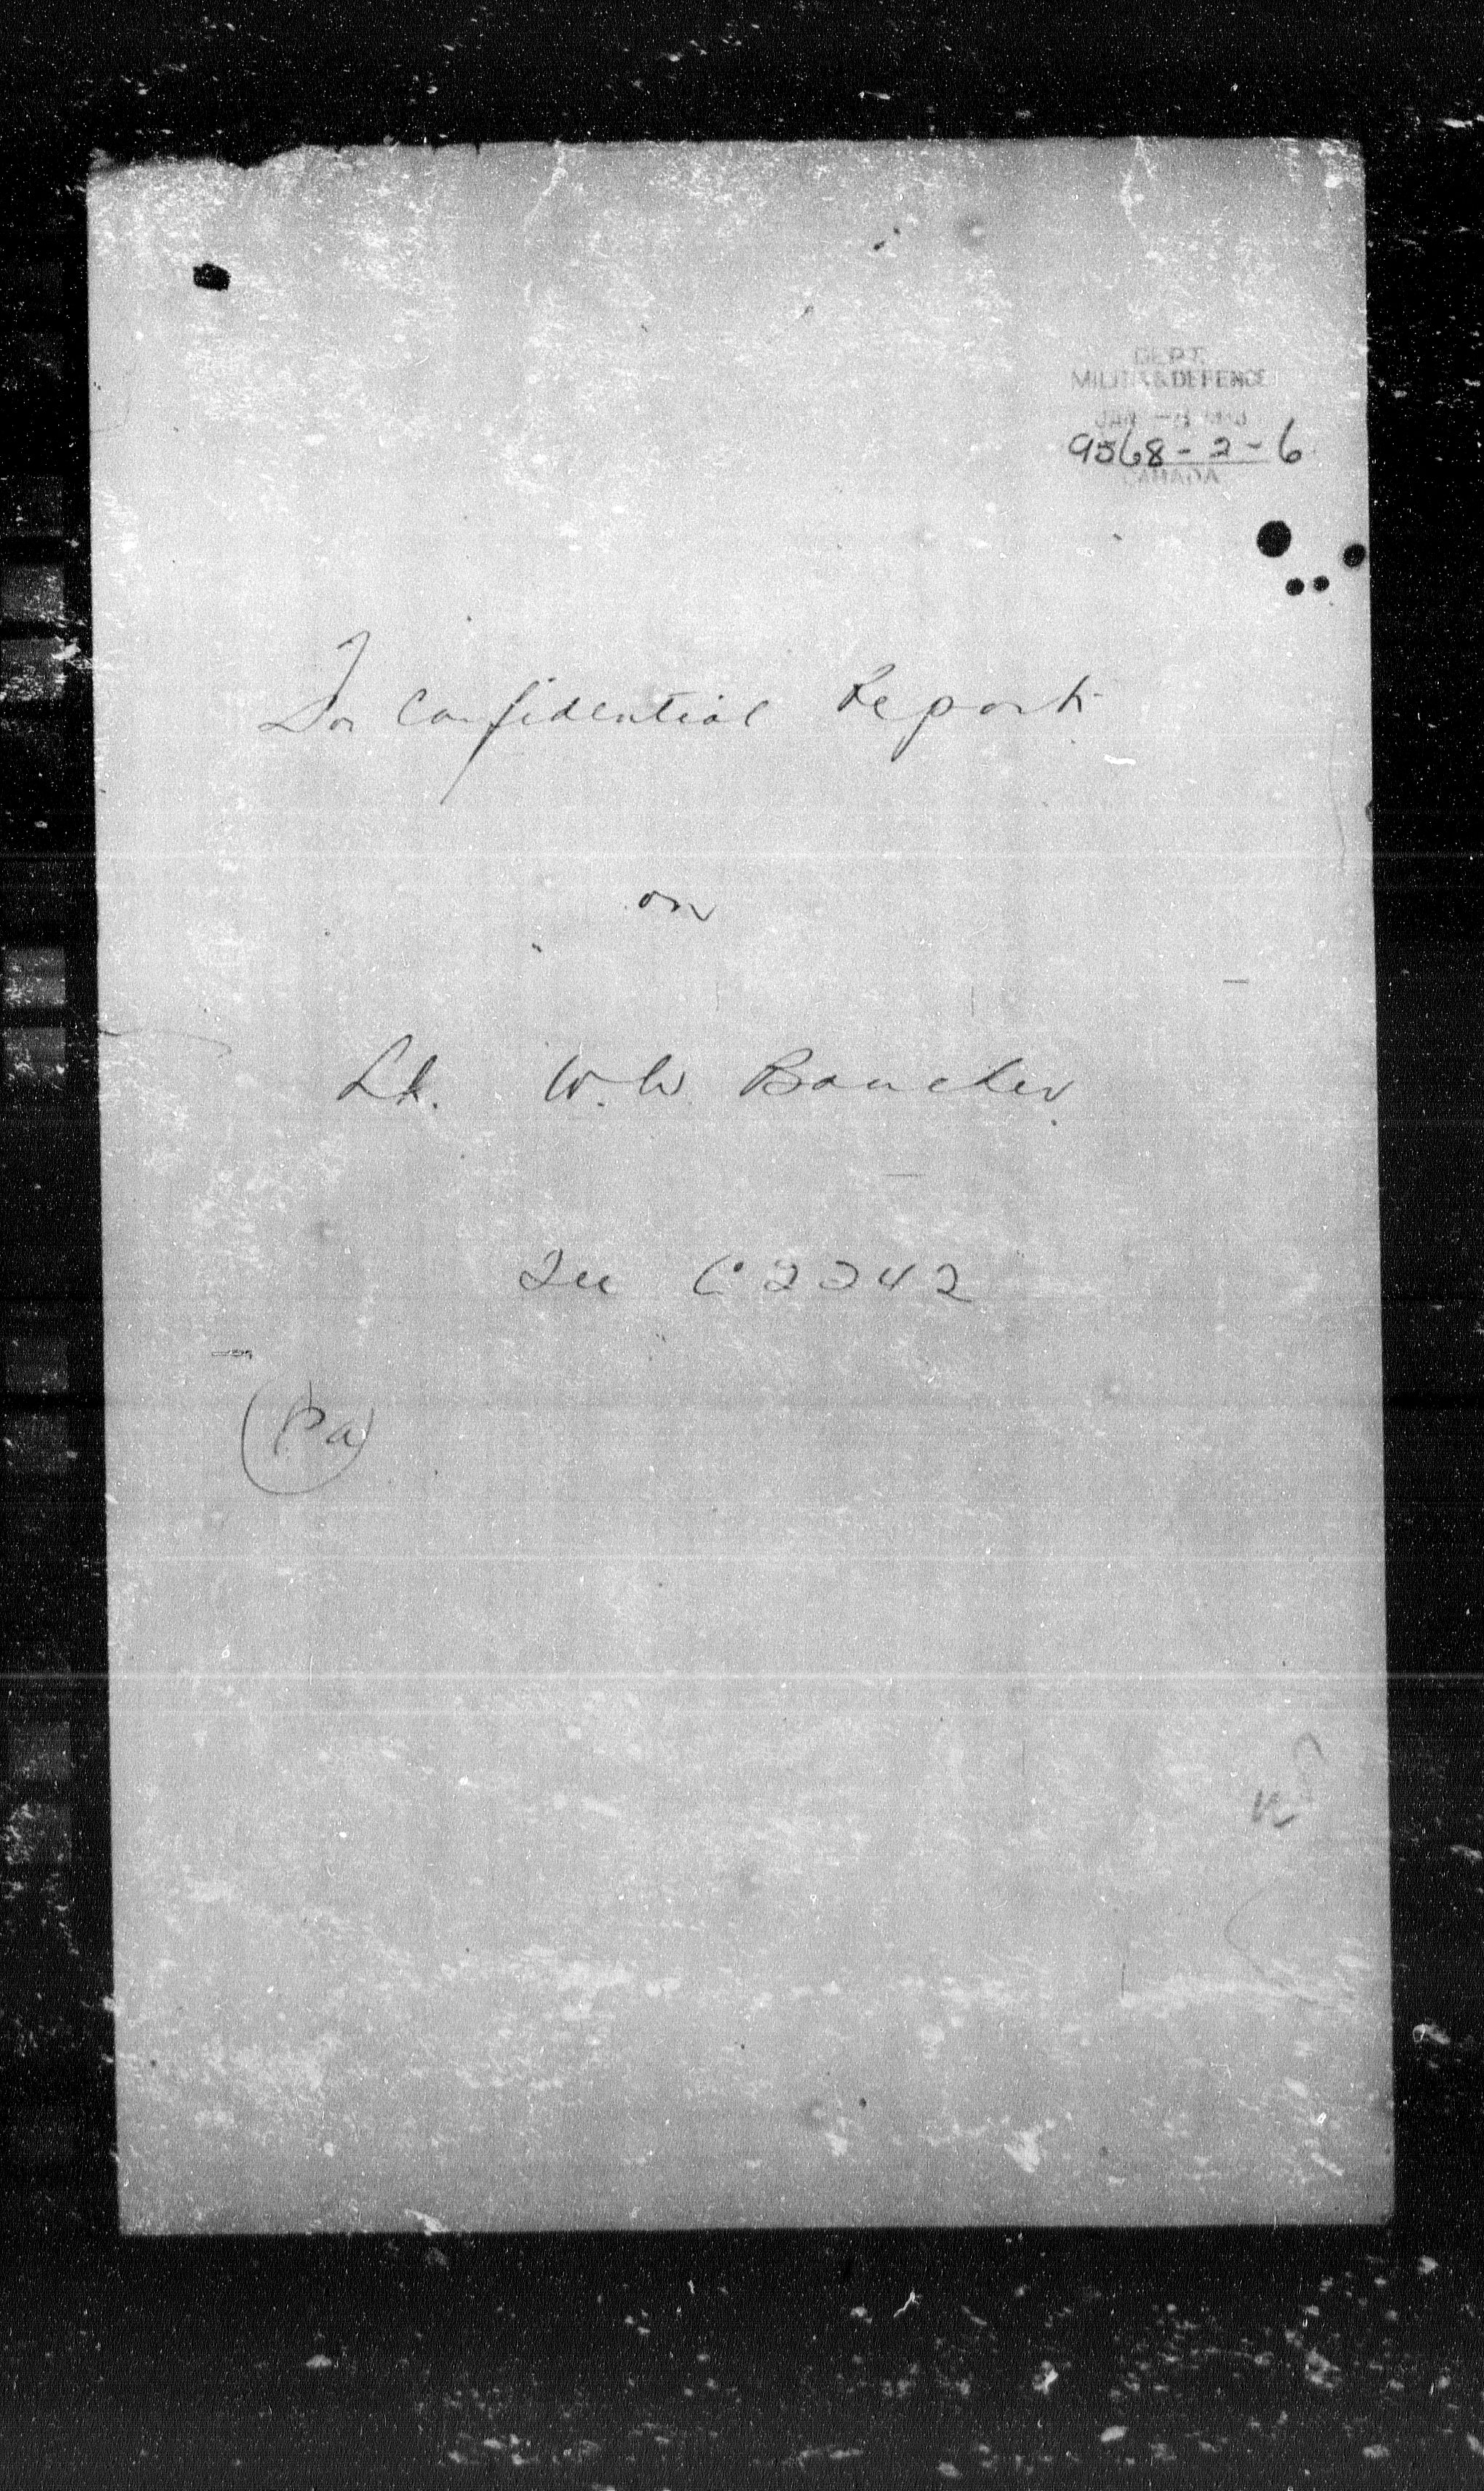 DEPT.
MILITIA & DEFENCE
JAN
9568-2-6
CANADA
For Confidential Report
on
Lt. W.W.
See C2242
(P.a)